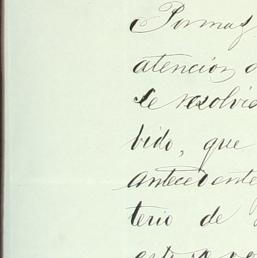 Formas
atencion
se resolvió
bido, que
antecedente
terio de